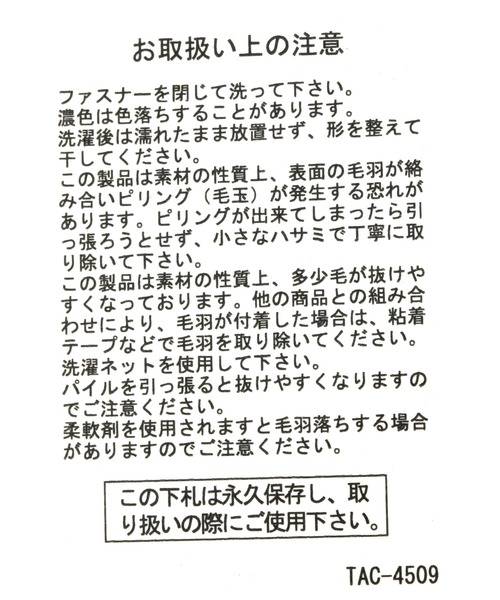 お取扱い上の注意
ファスナーを閉じて洗って下さい。
濃色は色落ちすることがあります。
洗濯後は濡れたまま放置せず、形を整えて
干してください。
この製品は素材の性質上、表面の毛羽が絡
み合いピリング（毛玉）が発生する恐れが
あります。ピリングが出来てしまったら引
っ張ろうとせず、小さなハサミで丁寧に取
り除いて下さい。
この製品は素材の性質上、多少毛が抜けや
すくなっております。他の商品との組み合
わせにより、毛羽が付着した場合は、粘着
テープなどで毛羽を取り除いてください。
洗濯ネットを使用して下さい。
パイルを引っ張ると抜けやすくなりますの
でご注意ください。
柔軟剤を使用されますと毛羽落ちする場合
がありますのでご注意ください。
この下札は永久保存し、取
り扱いの際にご使用下さい。
TAC-4509